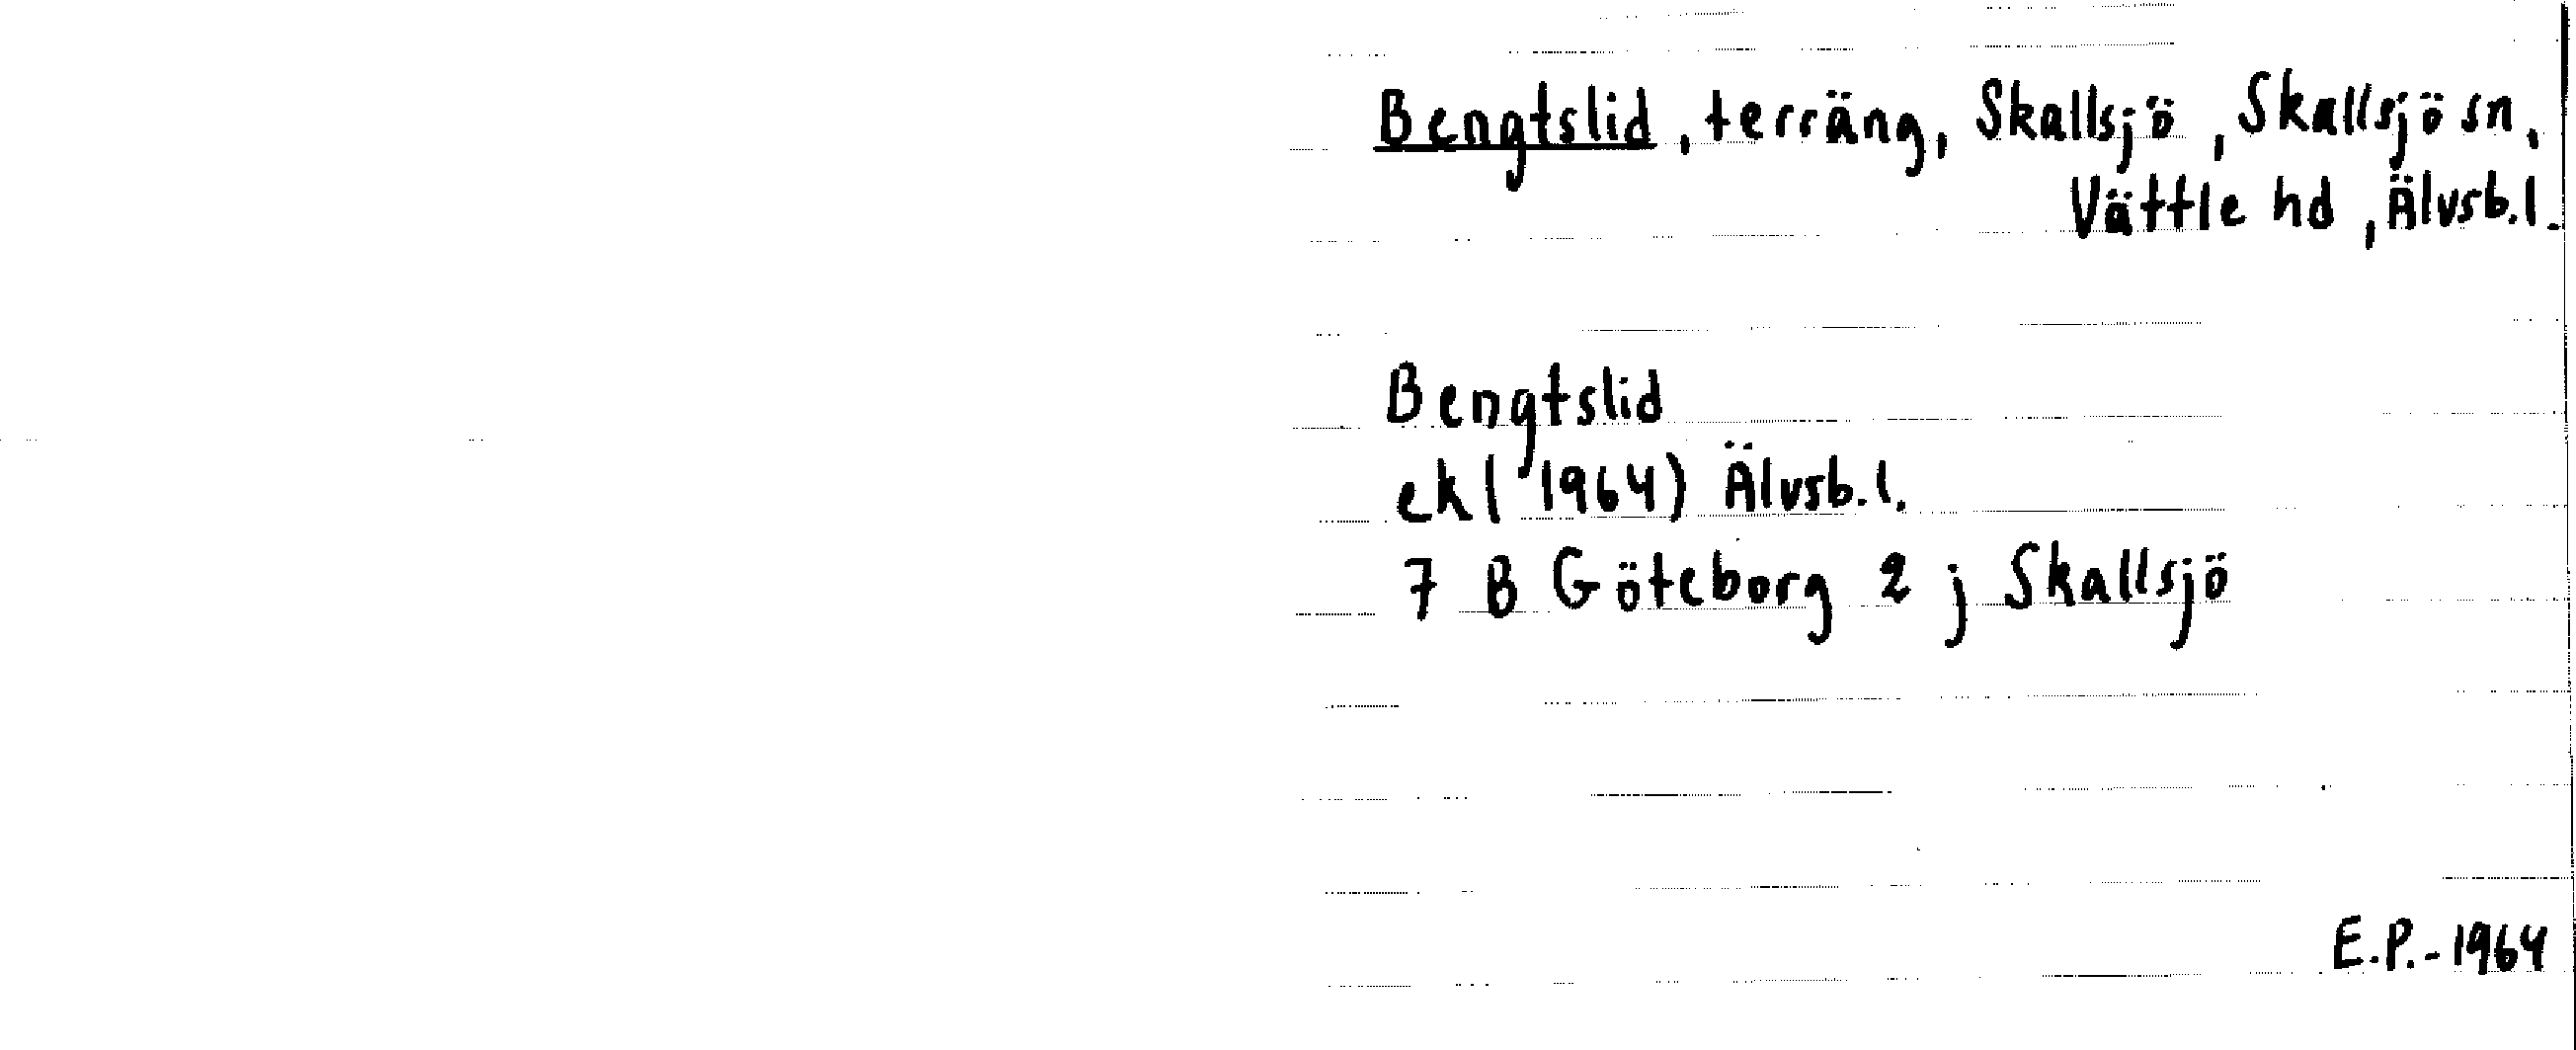 Bengtslid, terräng, Skallsjö, Skallsjö sn,
Vättle hd, Älvsb.l.
Bengtslid
ek (1964) Älvsb.l.
7 B Göteborg 2 j Skallsjö
E.P.-1964